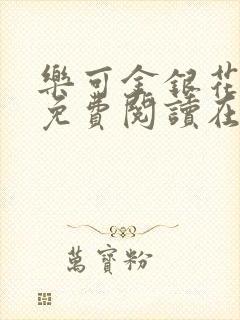 樂可金銀花
免費閱讀在
萬寶粉